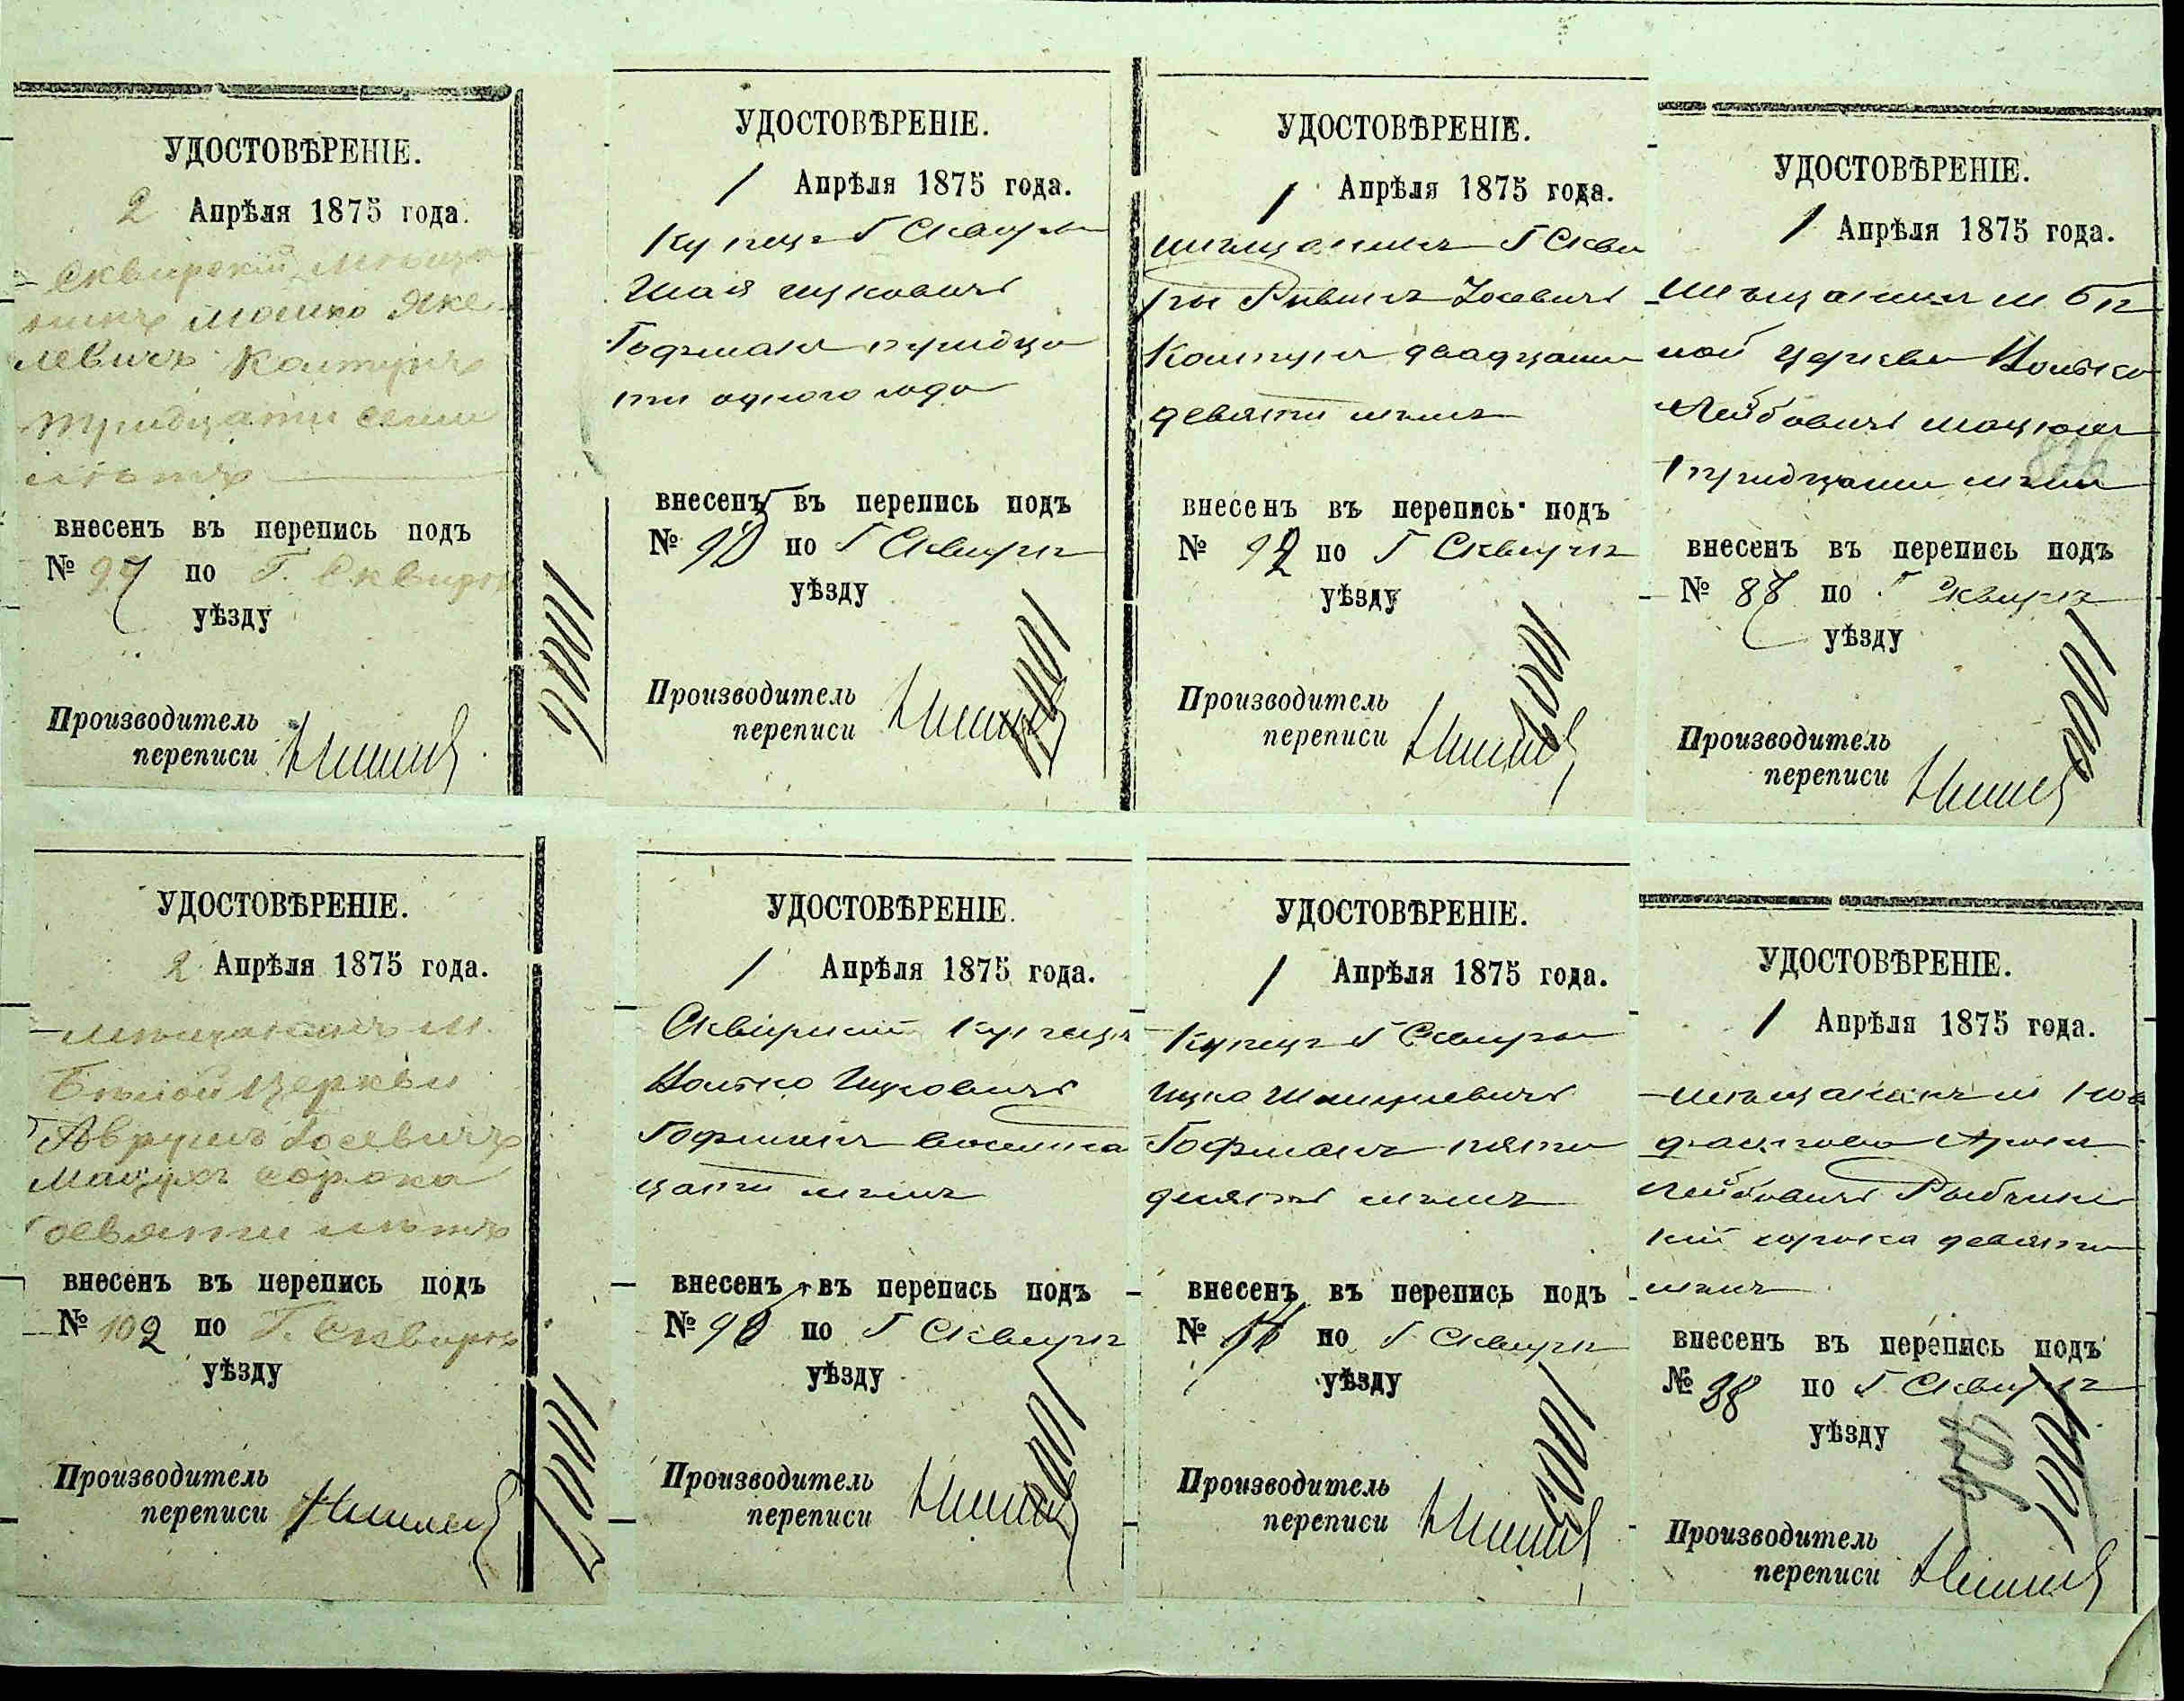 УДОСТОВѢРЕНІЕ.
2 Апрѣля 1875 года.
Сквирскій мѣща-
нинъ Мошко Янке-
левичъ Колтунъ
тридцати семи
лѣтъ
внесенъ въ перепись подъ
№ 97 по Г. Сквирѣ
уѣзду
Производитель
переписи
УДОСТОВѢРЕНІЕ.
1 Апрѣля 1875 года.
Купецъ Г Сквиры
Шая Ицковичъ
Гофманъ тридца
ти одного года
внесенъ въ перепись подъ
№ по Г Сквирѣ
уѣзду
Производитель
переписи
УДОСТОВѢРЕНІЕ.
1 Апрѣля 1875 года.
мѣщанинъ Г Скви
ры Рувинъ Іосевичъ
Колтунъ двадцати
девяти лѣтъ
внесенъ въ перепись подъ
№ 92 по Г Сквирѣ
уѣзду
Производитель
переписи
УДОСТОВѢРЕНІЕ.
1 Апрѣля 1875 года.
мѣщанинъ м Бѣ
лой Церкви Волько
Лейбовичъ
тридцати лѣтъ
внесенъ въ перепись подъ
№ 87 по Г Сквирѣ
уѣзду
Производитель
переписи
УДОСТОВѢРЕНІЕ.
2 Апрѣля 1875 года.
мѣщанинъ м.
Бѣлой Церкви
Аврумъ Іосевичъ
сорока
девяти лѣтъ
внесенъ въ перепись подъ
№ 102 по Г. Сквирѣ
уѣзду
Производитель
переписи
УДОСТОВѢРЕНІЕ.
1 Апрѣля 1875 года.
Сквирскій купецъ
Волько Ицковичъ
Гофманъ восемна
цати лѣтъ
внесенъ въ перепись подъ
№ по Г Сквирѣ
уѣзду
Производитель
переписи
УДОСТОВѢРЕНІЕ.
1 Апрѣля 1875 года.
Купецъ Г Сквиры
Ицко
Гофманъ пяти
десяти лѣтъ
внесенъ въ перепись подъ
№ по Г Сквирѣ
уѣзду
Производитель
переписи
УДОСТОВѢРЕНІЕ.
1 Апрѣля 1875 года.
мѣщанинъ м
Лейбовичъ
кій сорока девяти
лѣтъ
внесенъ въ перепись подъ
№ 88 по Г. Сквирѣ
уѣзду
Производитель
переписи